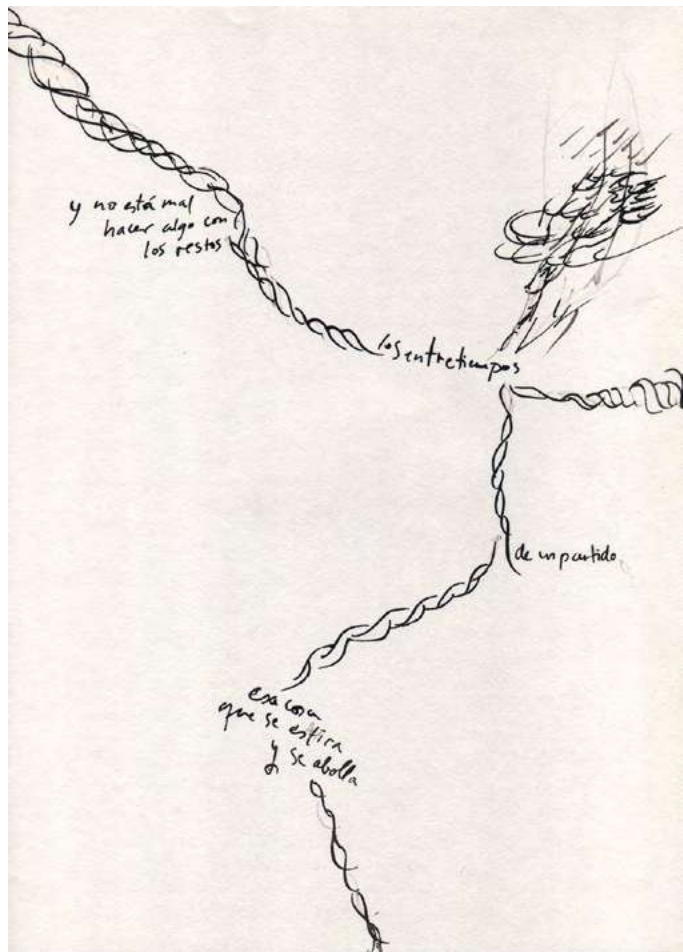 y no está mal
hacer algo con
los restos
los entretiempos
de un partido
esa cosa
que se estira
y se abolla